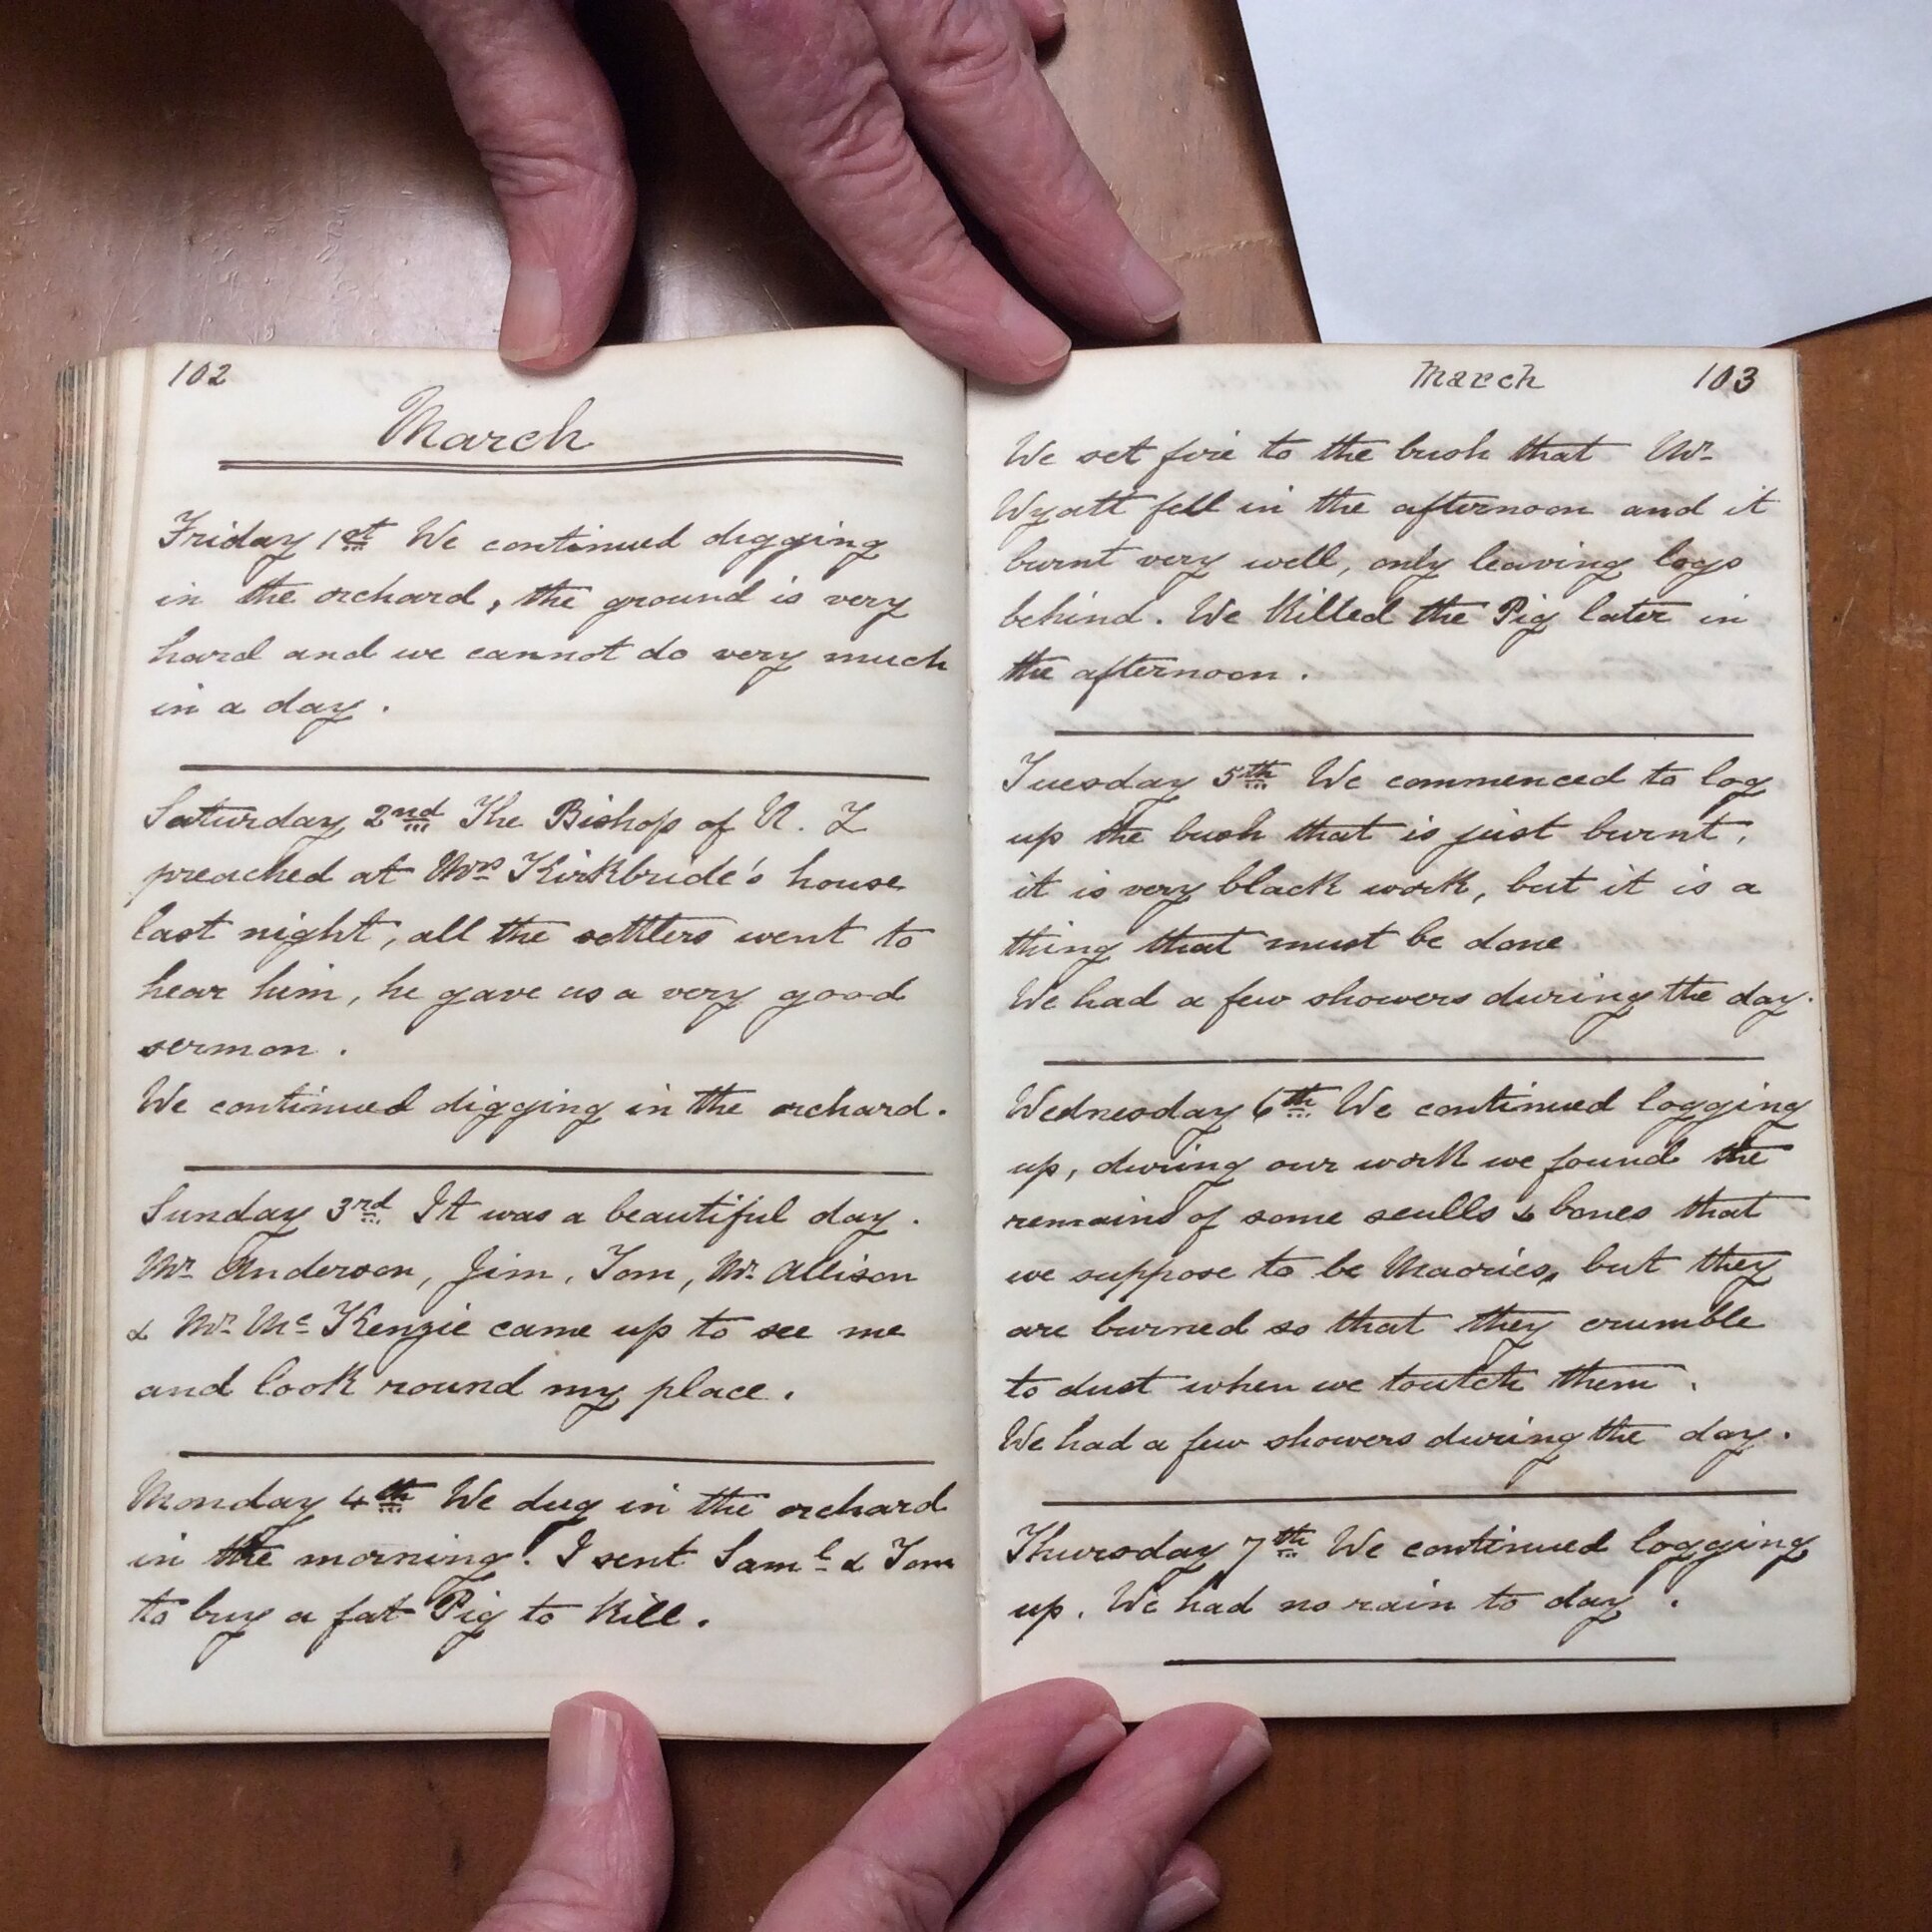 102
March
Friday 1st We continued digging
in the orchard, the ground is very
hard and we cannot do very much
in a day.
Saturday 2nd The Bishop of N. Z
preached at Mrs Kirkbride's house
last night, all the settlers went to
hear him, he gave us a very good
sermon.
We continued digging in the orchard.
Sunday 3rd It was a beautiful day.
Mr Anderson, Jim, Tom, Mr Allison
& Mr Mc Kenzie came up to see me
and look round my place.
Monday 4th We dug in the orchard
in the morning. I sent Saml & Tom
to buy a fat Pig to kill.
March 103
We set fire to the bush that Mr
Wyatt fell in the afternoon and it
burnt very well, only leaving logs
behind. We killed the Pig later in
the afternoon.
Tuesday 5th We commenced to log
up the bush that is just burnt,
it is very black work, but it is a
thing that must be done
We had a few showers during the day.
Wednesday 6th We continued logging
up, during our work we found the
remains of some sculls & bones that
we suppose to be Maories, but they
are burned so that they crumble
to dust when we toutch them.
We had a few showers during the day.
Thursday 7th We continued logging
up. We had no rain to day.